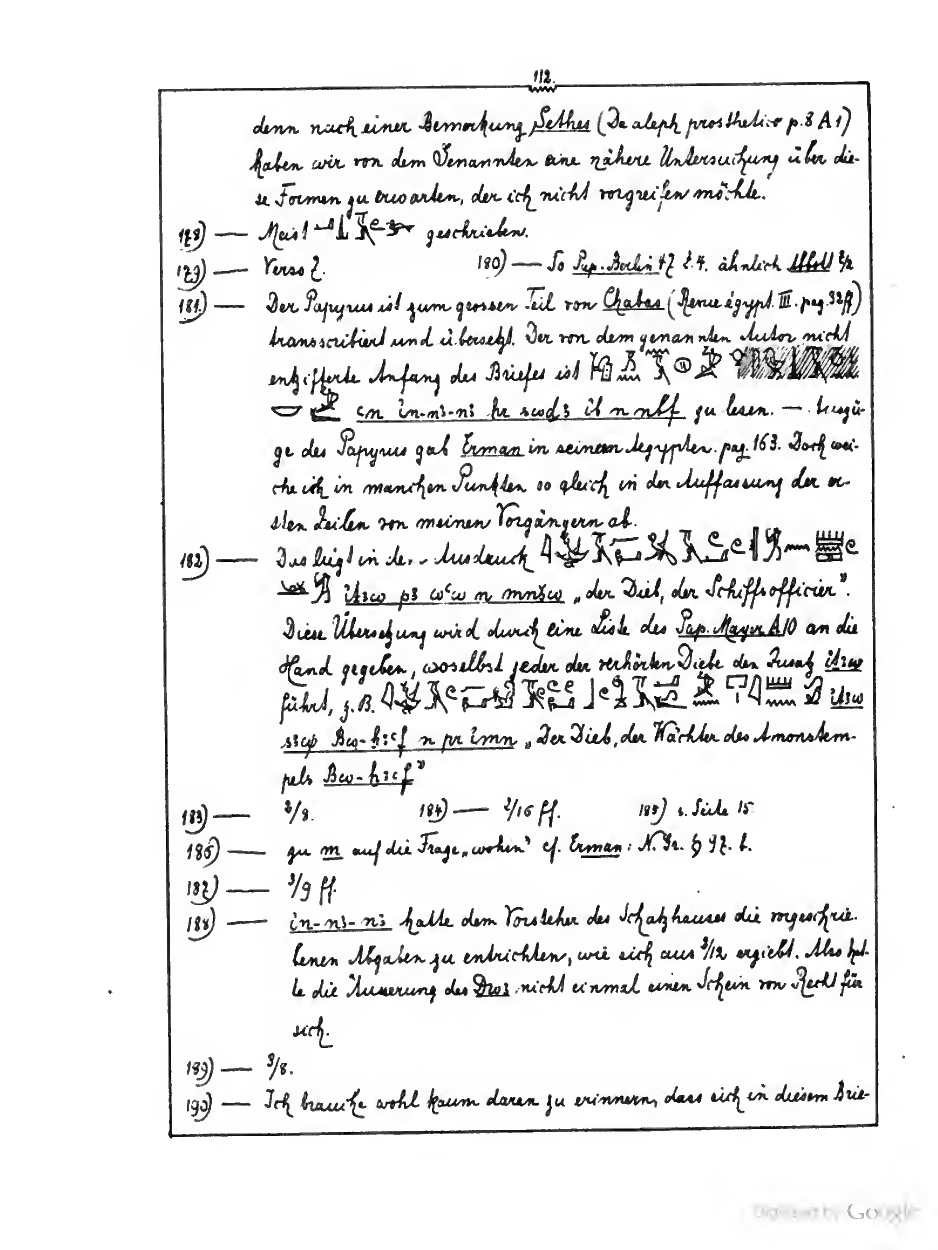 112.
denn nach einer Bemerkung Sethes (De aleph prosthetico p. 8 A 1)
haben wir von dem Genannten eine nähere Untersuchung über die-
se Formen zu erwarten, der ich nicht vorgreifen möchte.
178) — Meist geschrieben.
179) — Verso 7. 180) — So Pap. Berlin 47 Z. 4. ähnlich Abbott
181.) — Der Papyrus ist zum grossen Teil von Chabas (Revue égypt. III. pag. 32 ff)
transscribiert und übersetzt. Der von dem genannten Autor nicht
entzifferte Anfang des Briefes ist
ꜥn in-nꜣ-nꜣ ḥr swdꜣ ib n nbf zu lesen. — Auszü-
ge des Papyrus gab Erman in seinem Aegypten. pag. 163. Doch wei-
che ich in manchen Punkten so gleich in der Auffassung der er-
sten Zeilen von meinen Vorgängern ab.
182) — Das liegt in dem Ausdruck
iṯꜣw pꜣ wꜥw n mnšw „der Dieb, der Schiffsofficier".
Diese Übersetzung wird durch eine Liste des Pap. Mayer A 10 an die
Hand gegeben, woselbst jeder der verhörten Diebe den Zusatz iṯꜣw
führt, z. B. iṯꜣw
sꜣw Bw-ḫꜣꜥf n pr imn „Der Dieb, der Wächter des Amonstem-
pels Bw-ḫꜣꜥf"
183) — 2/8. 184) — 2/16 ff. 185) s. Seite 15
186) — zu m auf die Frage „wohin" cf. Erman: N. Gr. § 97. b.
187) — 3/9 ff.
188) — in-nꜣ-nꜣ hatte dem Vorsteher des Schatzhauses die vorgeschrie-
benen Abgaben zu entrichten, wie sich aus 3/12 ergiebt. Also hat-
te die Äusserung des Dwꜣ nicht einmal einen Schein von Recht für
sich.
189) — 3/8.
190) — Ich brauche wohl kaum daran zu erinnern, dass sich in diesem Brie-
Digitized by Google